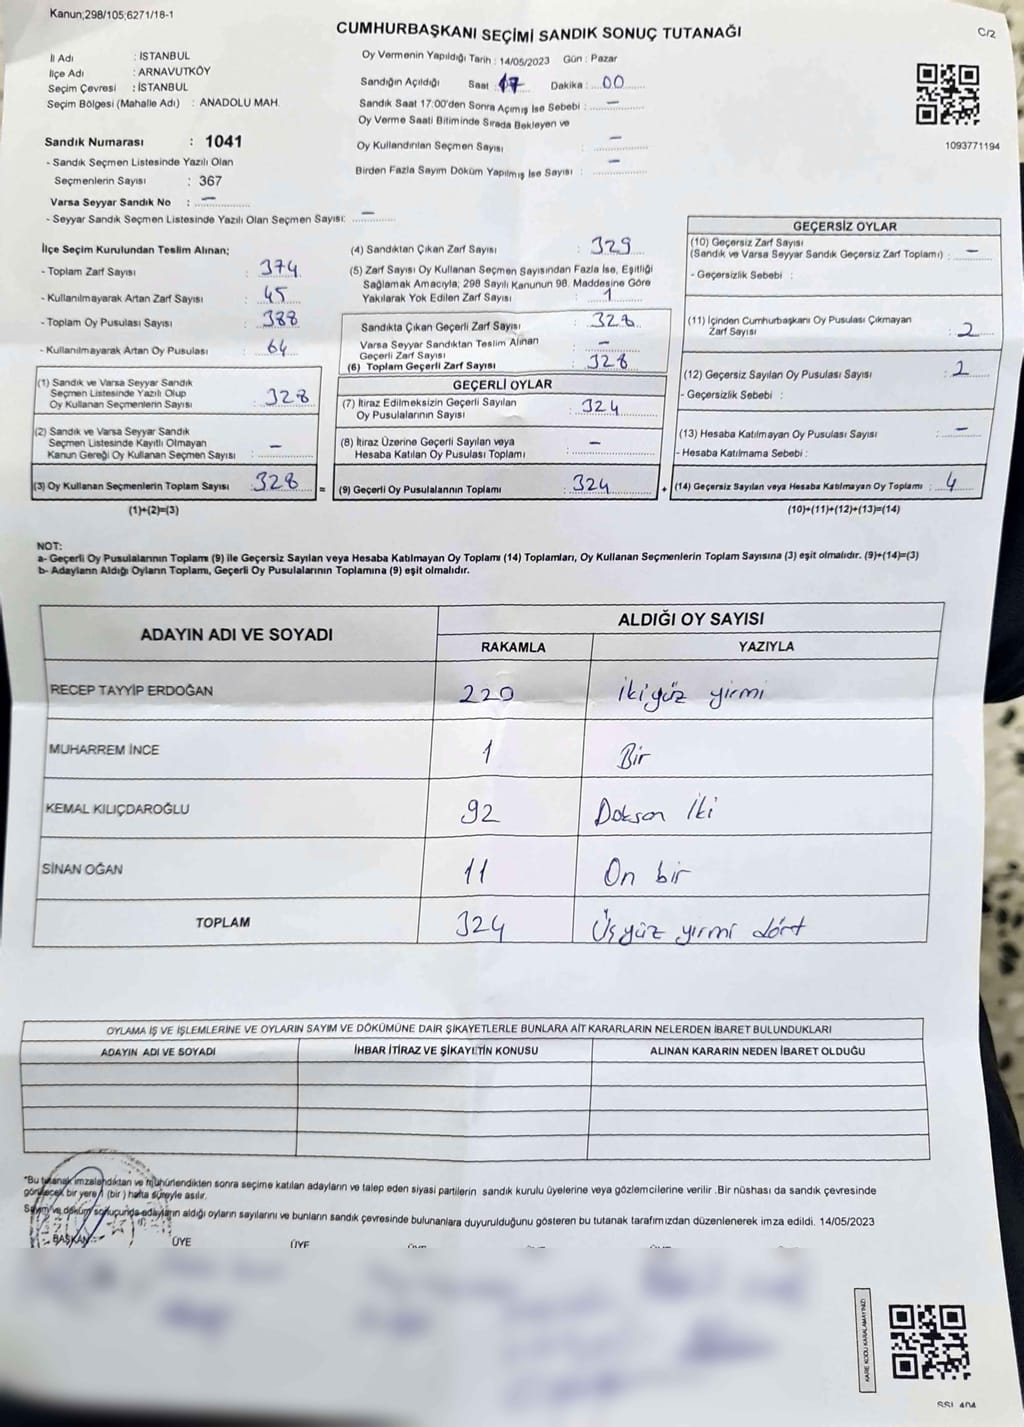 Kanun;298/105;6271/18-1
CUMHURBAŞKANI SEÇİMİ SANDIK SONUÇ TUTANAĞI
C/2
İl Adı : İSTANBUL
İlçe Adı : ARNAVUTKÖY
Seçim Çevresi : İSTANBUL
Seçim Bölgesi (Mahalle Adı) : ANADOLU MAH.
Sandık Numarası : 1041
- Sandık Seçmen Listesinde Yazılı Olan
Seçmenlerin Sayısı : 367
Varsa Seyyar Sandık No : –
- Seyyar Sandık Seçmen Listesinde Yazılı Olan Seçmen Sayısı: –
Oy Vermenin Yapıldığı Tarih : 14/05/2023 Gün : Pazar
Sandığın Açıldığı Saat 17 Dakika : 00
Sandık Saat 17:00'den Sonra Açımış İse Sebebi : –
Oy Verme Saati Bitiminde Sırada Bekleyen ve
Oy Kullandırılan Seçmen Sayısı : –
Birden Fazla Sayım Döküm Yapılmış İse Sayısı : –
1093771194
İlçe Seçim Kurulundan Teslim Alınan;
- Toplam Zarf Sayısı : 374
- Kullanılmayarak Artan Zarf Sayısı : 45
- Toplam Oy Pusulası Sayısı : 388
- Kullanılmayarak Artan Oy Pusulası : 64
(1) Sandık ve Varsa Seyyar Sandık
Seçmen Listesinde Yazılı Olup
Oy Kullanan Seçmenlerin Sayısı : 328
(2) Sandık ve Varsa Seyyar Sandık
Seçmen Listesinde Kayıtlı Olmayan
Kanun Gereği Oy Kullanan Seçmen Sayısı : –
(3) Oy Kullanan Seçmenlerin Toplam Sayısı : 328 =
(1)+(2)=(3)
(4) Sandıktan Çıkan Zarf Sayısı : 329
(5) Zarf Sayısı Oy Kullanan Seçmen Sayısından Fazla İse, Eşitliği
Sağlamak Amacıyla; 298 Sayılı Kanunun 98. Maddesine Göre
Yakılarak Yok Edilen Zarf Sayısı : 1
Sandıkta Çıkan Geçerli Zarf Sayısı : 328
Varsa Seyyar Sandıktan Teslim Alınan
Geçerli Zarf Sayısı : –
(6) Toplam Geçerli Zarf Sayısı : 328
GEÇERLİ OYLAR
(7) İtiraz Edilmeksizin Geçerli Sayılan
Oy Pusulalarının Sayısı : 324
(8) İtiraz Üzerine Geçerli Sayılan veya
Hesaba Katılan Oy Pusulası Toplamı : –
(9) Geçerli Oy Pusulalarının Toplamı : 324 +
GEÇERSİZ OYLAR
(10) Geçersiz Zarf Sayısı
(Sandık ve Varsa Seyyar Sandık Geçersiz Zarf Toplamı) : –
- Geçersizlik Sebebi :
(11) İçinden Cumhurbaşkanı Oy Pusulası Çıkmayan
Zarf Sayısı : 2
(12) Geçersiz Sayılan Oy Pusulası Sayısı : 2
- Geçersizlik Sebebi :
(13) Hesaba Katılmayan Oy Pusulası Sayısı : –
- Hesaba Katılmama Sebebi :
(14) Geçersiz Sayılan veya Hesaba Katılmayan Oy Toplamı : 4
(10)+(11)+(12)+(13)=(14)
NOT:
a- Geçerli Oy Pusulalarının Toplamı (9) ile Geçersiz Sayılan veya Hesaba Katılmayan Oy Toplamı (14) Toplamları, Oy Kullanan Seçmenlerin Toplam Sayısına (3) eşit olmalıdır. (9)+(14)=(3)
b- Adayların Aldığı Oyların Toplamı, Geçerli Oy Pusulalarının Toplamına (9) eşit olmalıdır.
ADAYIN ADI VE SOYADI
ALDIĞI OY SAYISI
RAKAMLA YAZIYLA
RECEP TAYYİP ERDOĞAN 220 İkiyüz yirmi
MUHARREM İNCE 1 Bir
KEMAL KILIÇDAROĞLU 92 Doksan İki
SİNAN OĞAN 11 On bir
TOPLAM 324 Üçyüz yirmi dört
OYLAMA İŞ VE İŞLEMLERİNE VE OYLARIN SAYIM VE DÖKÜMÜNE DAİR ŞİKAYETLERLE BUNLARA AİT KARARLARIN NELERDEN İBARET BULUNDUKLARI
ADAYIN ADI VE SOYADI İHBAR İTİRAZ VE ŞİKAYETİN KONUSU ALINAN KARARIN NEDEN İBARET OLDUĞU
*Bu tutanak imzalandıktan ve mühürlendikten sonra seçime katılan adayların ve talep eden siyasi partilerin sandık kurulu üyelerine veya gözlemcilerine verilir .Bir nüshası da sandık çevresinde
görülecek bir yere 1 (bir ) hafta süreyle asılır.
Sayım ve döküm sonuçunda adayların aldığı oyların sayılarını ve bunların sandık çevresinde bulunanlara duyurulduğunu gösteren bu tutanak tarafımızdan düzenlenerek imza edildi. 14/05/2023
BAŞKAN ÜYE ÜYE
KARE KODU KARALAMAYINIZ!